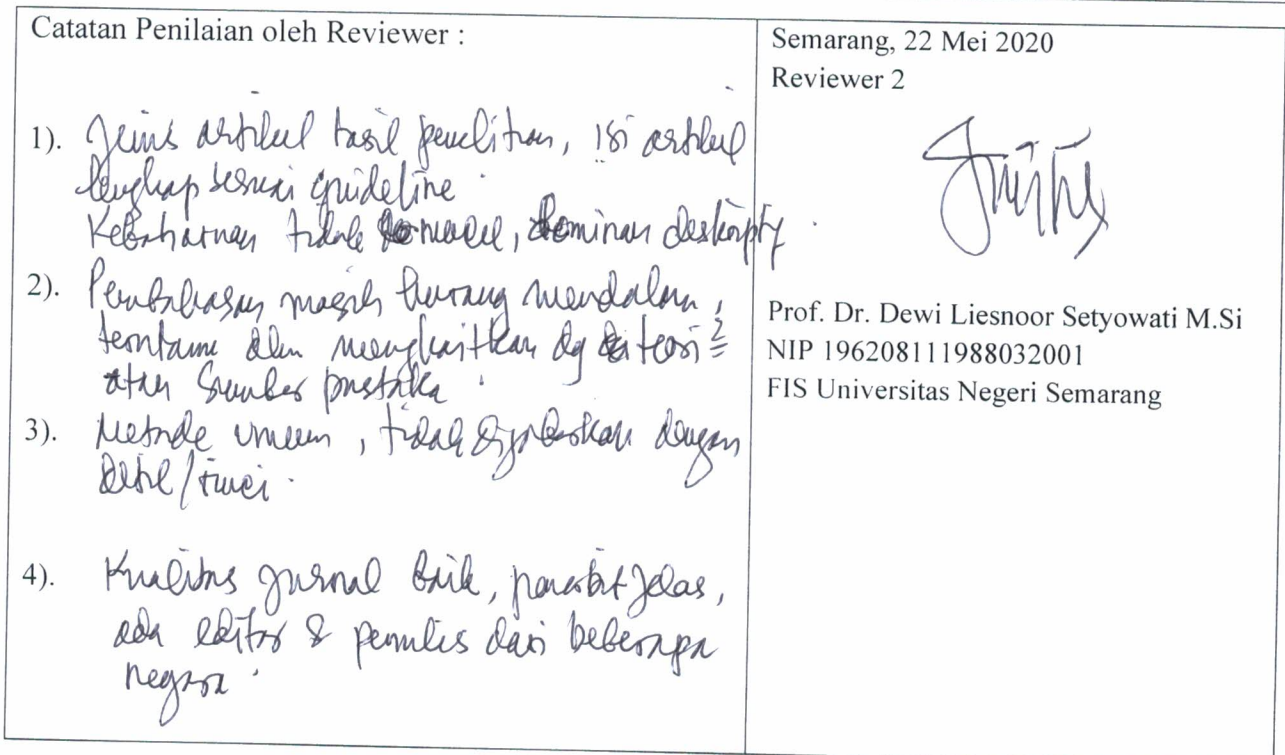 Catatan Penilaian oleh Reviewer :
1). Jenis artikel hasil penelitian, isi artikel
lengkap sesuai guideline.
Kebaharuan tidak, dominan deskriptif.
2). Pembahasan masih kurang mendalam,
terutama dlm mengkaitkan dg teori2
atau sumber pustaka.
3). Metode umum, tidak dijabarkan dengan
detil/rinci.
4). Kualitas jurnal baik, penerbit jelas,
ada editor & penulis dari beberapa
negara.
Semarang, 22 Mei 2020
Reviewer 2
Prof. Dr. Dewi Liesnoor Setyowati M.Si
NIP 196208111988032001
FIS Universitas Negeri Semarang